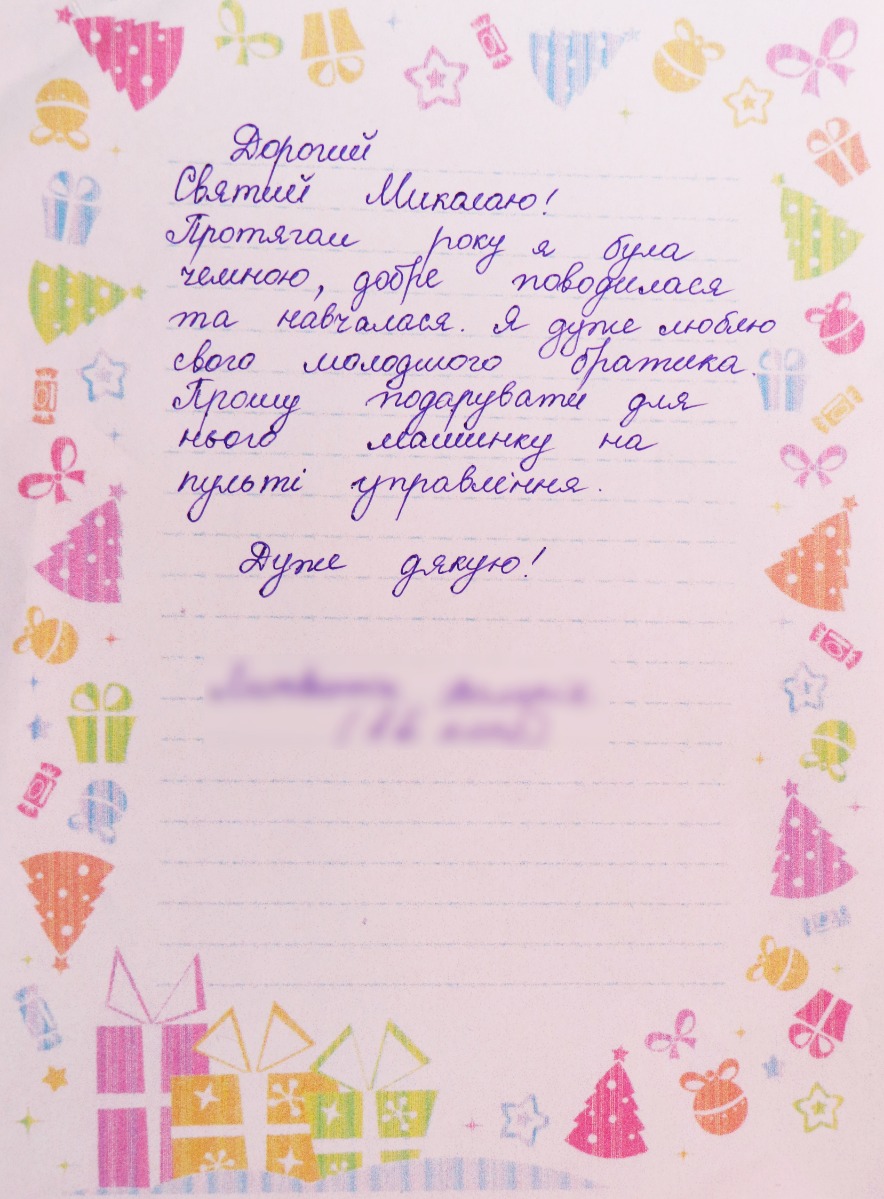 Дорогий
Святий Миколаю!
Протягом року я була
чемною, добре поводилася
та навчалася. Я дуже люблю
свого молодшого братика.
Прошу подарувати для
нього машинку на
пульті управління.
Дуже дякую!